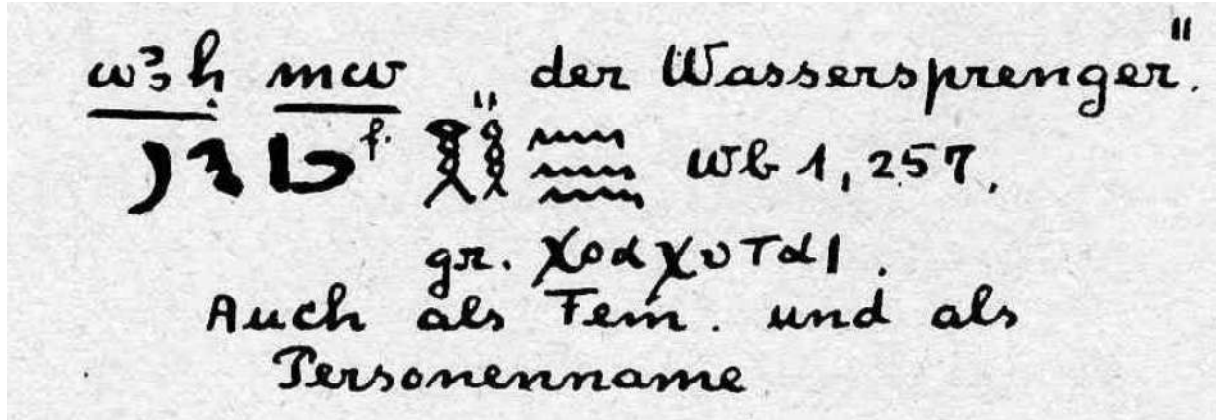 wꜣḥ mw „der Wassersprenger“.
f. Wb 1, 257,
gr. χοαχυται.
Auch als Fem. und als
Personenname